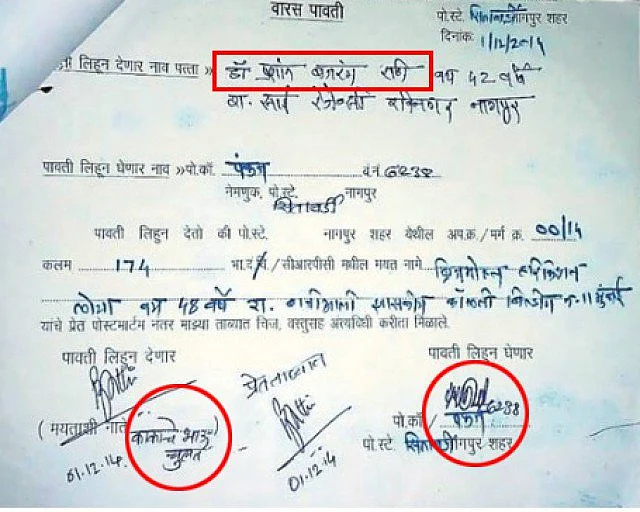 वारस पावती
पो.स्टे. सिताबर्डी नागपुर शहर
दिनांक 1/12/2014
लिहून देणार नाव पत्ता » डॉ प्रशांत बजरंग राठी वय 42 वर्ष
रा. साई रेजेन्सी रविनगर नागपुर
पावती लिहून घेणार नाव » पो.कॉ. पंकज ब.नं 6238
नेमणुक, पो.स्टे. सिताबर्डी नागपुर
पावती लिहून देतो की पो.स्टे. नागपुर शहर येथील अप.क्र./मर्ग क्र. 00/14
कलम 174 भा.द.वि/सीआरपीसी मधील मयत नामे ब्रिजमोहन हरिकिशन
लोया वय 48 वर्षे रा. कॉलनी बिल्डींग न. 11 मुंबई
यांचे प्रेत पोस्टमार्टम नंतर माझ्या ताब्यात चिज, वस्तुसह अंत्यविधी करीता मिळाले.
पावती लिहून देणार
पावती लिहून घेणार
प्रेत ताब्यात
(मयताशी नाते काकाचे भाऊ)
चुलत
01.12.14
01.12.14
पो.कॉ/ पंकज 6238
पो.स्टे. सिताबर्डी नागपुर शहर